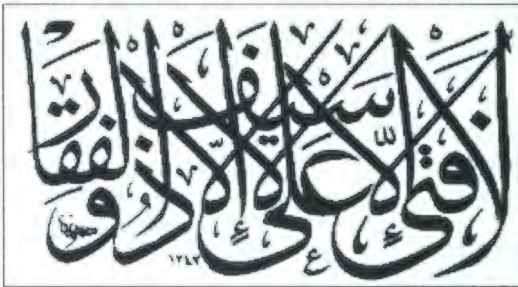 لا فتى إلا على لا سيف إلا ذو الفقار
١٢٤٣